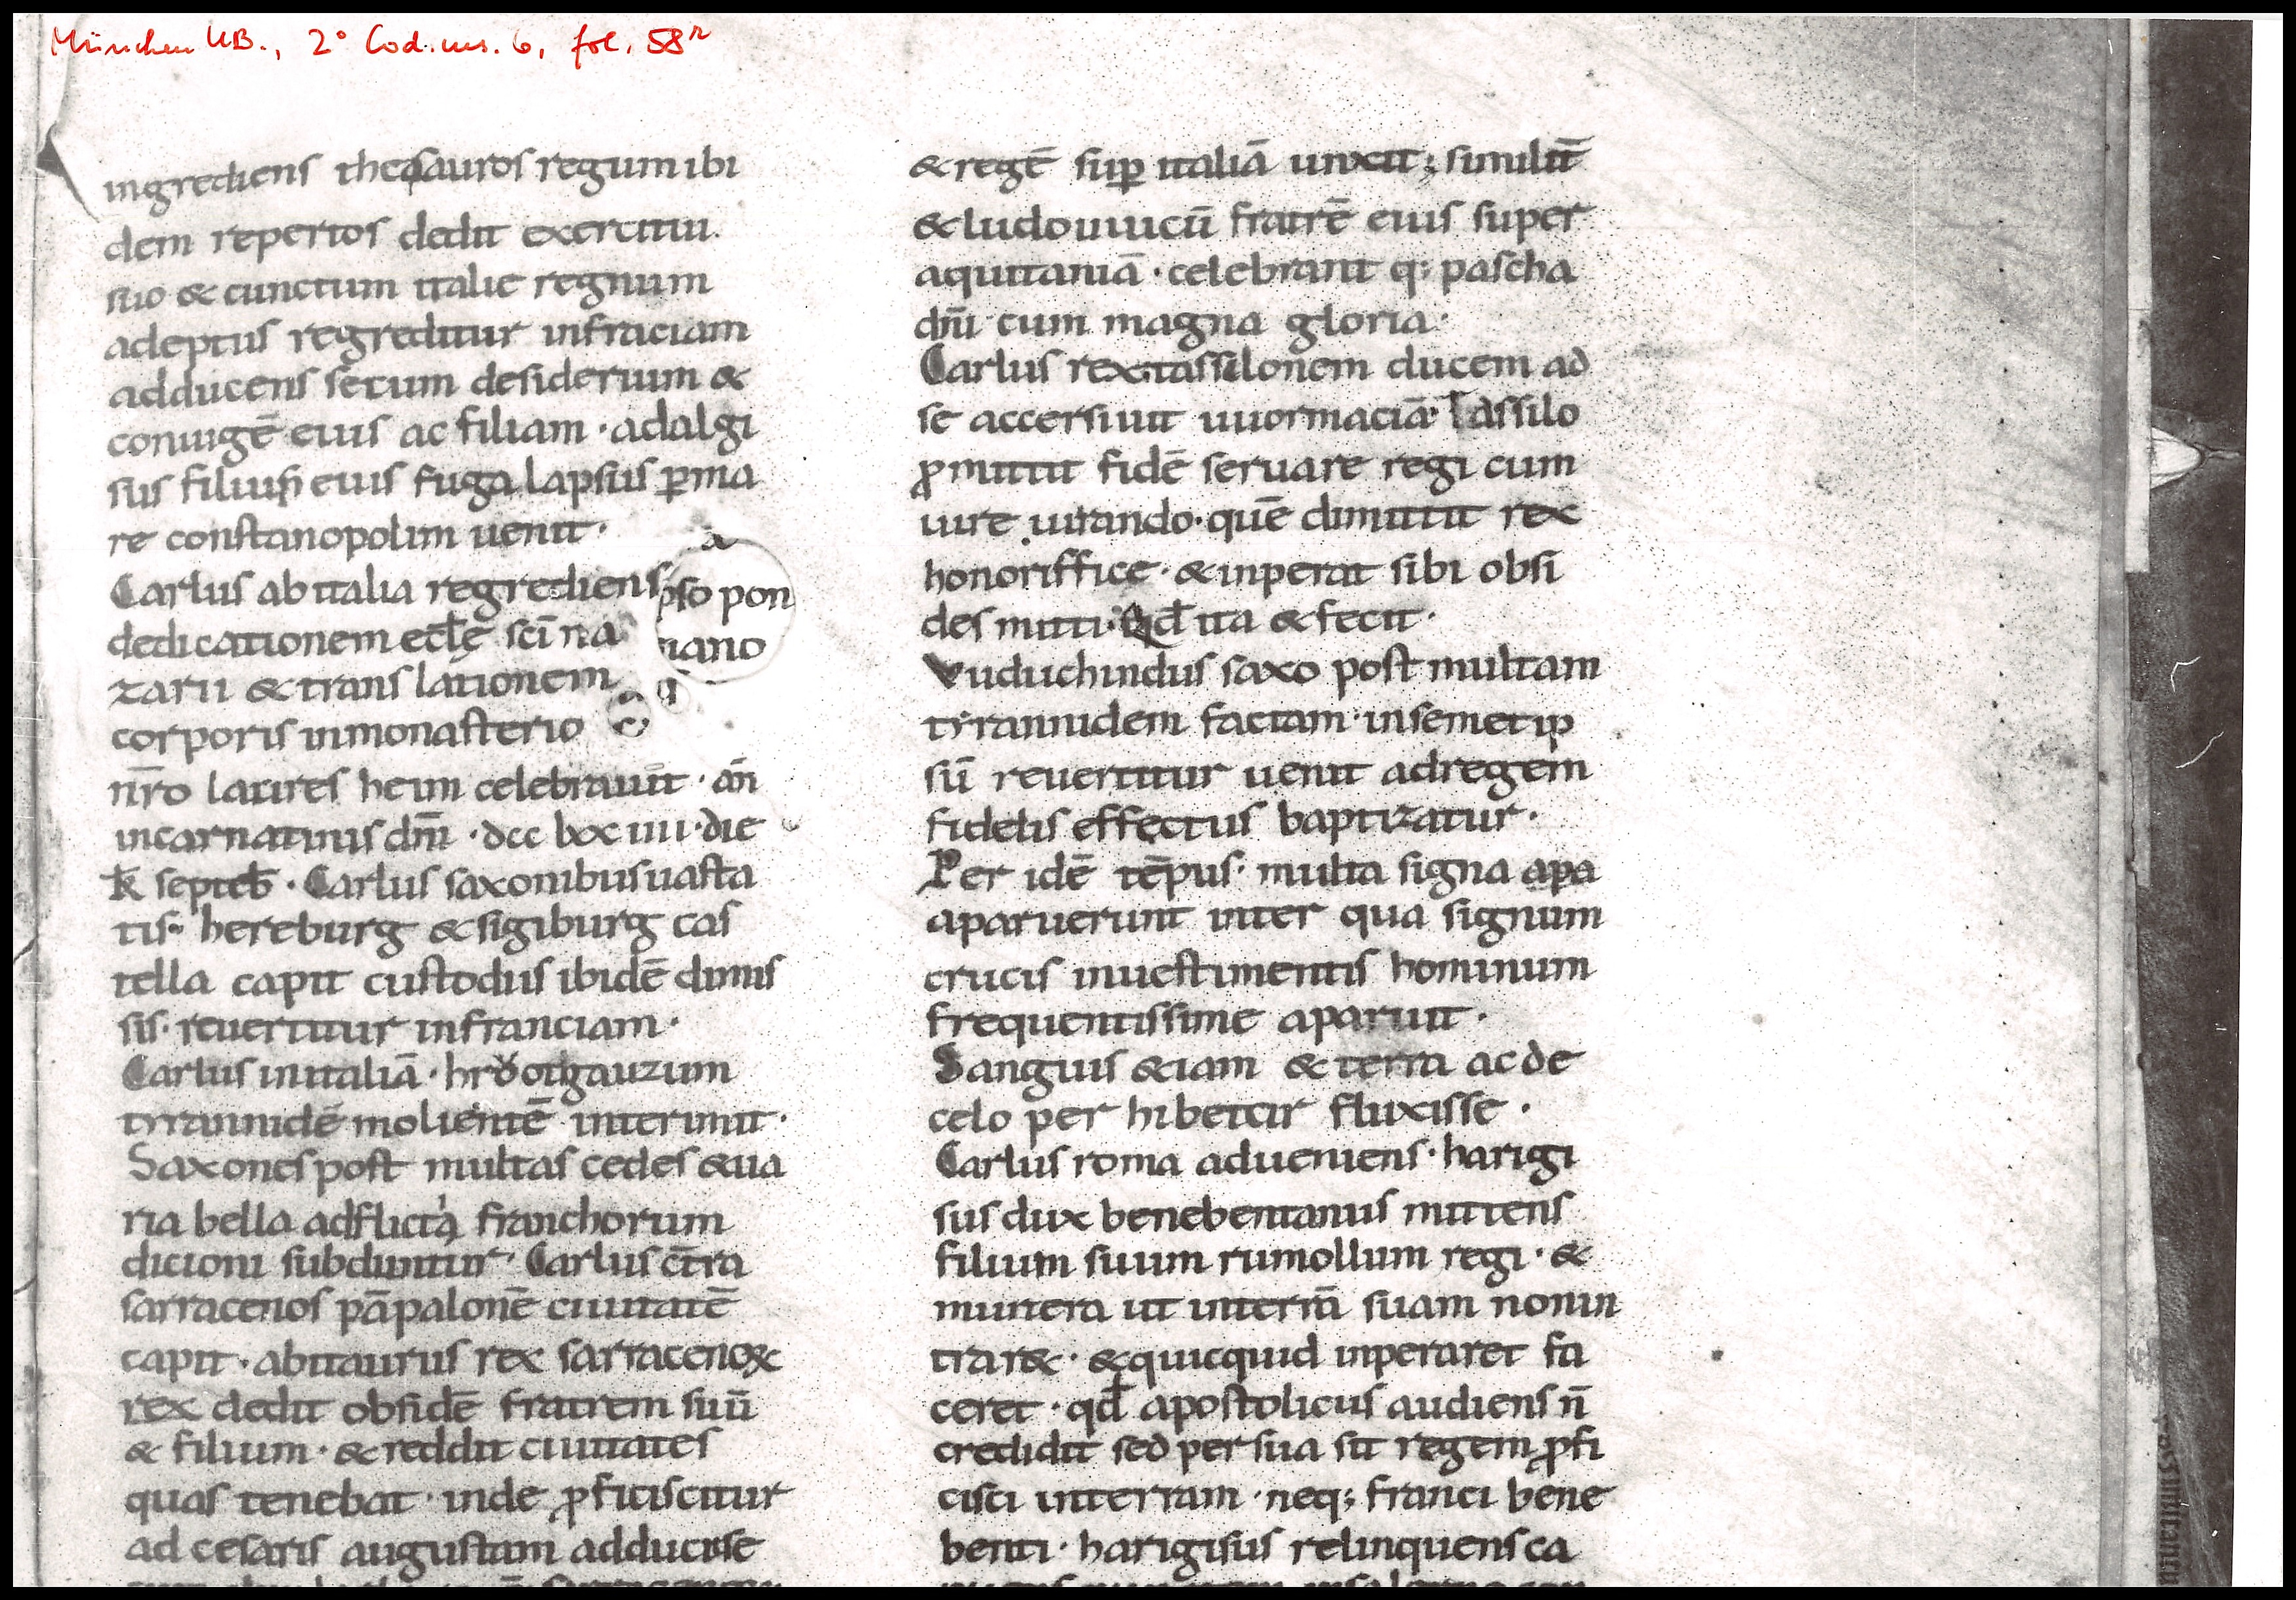 München UB., 2° Cod. ms. 6, fol. 58r
ingrediens thesauros regum ibi
dem repertos dedit exercitui.
suo & cunctum italie regnum
adeptus regreditur infraciam
adducens secum desiderium &
coniugē eius ac filiam · adalgi
sus filius eius fuga lapsus ꝑma
re constanopolim uenit ·
Carlus ab italia regrediens
dedicationem ecłe sc̄i na
zarii & translationem
corporis inmonasterio
nr̄o laures heim celebrauit · an̄
incarnatinis dn̄i · dcc lxx iiii · die
k̄ septeb̄ · Carlus saxonibus uasta
tis · hereburg & sigiburg cas
tella capit custodiis ibidē dimis
sis · reuertitur infranciam ·
Carlus initaliā · hrootgauzum
tyrannidē molientē interimit ·
Saxones post multas cedes & ua
ria bella adflicta franchorum
dicioni subduntur · Carlus c̄tra
sarracenos pāpalonē ciuitatē
capit · abitaurus rex sarracenoꝝ
rex dedit obsidē fratrem suū
& filium · & reddit ciuitates
quas tenebat · inde ꝓficiscitur
ad cesaris augustam adducise
pso pon
iano
& regē suꝑ italiā unxit ; similit̄
& ludouuicū fratrē eius super
aquitaniā · celebrant q; pascha
dn̄i cum magna gloria ·
Carlus rex tassilonem ducem ad
se accersiuit uuormaciā · Tassilo
ꝓmittit fidē seruare regi cum
iure iurando · quē dimittit rex
honoriffice · & inperat sibi obsi
des mitti · Qd̄ ita & fecit ·
Vuduchindus saxo post multam
tyrannidem factam · insemetip
sū reuertitur uenit adregem
fidelis effectus baptizatur ·
Per idē tēpus · multa signa apa
aparuerunt inter qua signum
crucis inuestimentis hominum
frequentissime aparuit ·
Sanguis &iam & terra ac de
celo per hibetur fluxisse ·
Carlus roma adueniens · harigi
sus dux benebentanus mittens
filium suum rumollum regi · &
munera ut interrā suam nonin
trar& · & quicquid inperaret fa
ceret · qd̄ apostolicus audiens n̄
credidit sed per sua sit regem ꝓfi
cisci interram · neq; franci bene
benti · harigisus relinquens ca